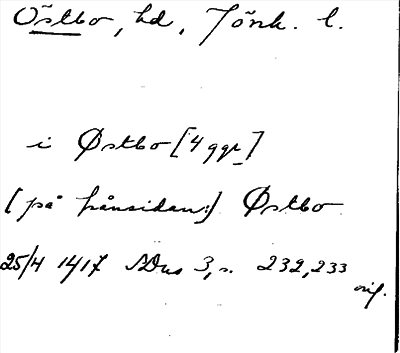 Östbo, hd, Jönk. l.
i Østbo [4 ggr]
[på frånsidan:] Østbo
25/4 1417 SDns 3, s. 232, 233
orig.